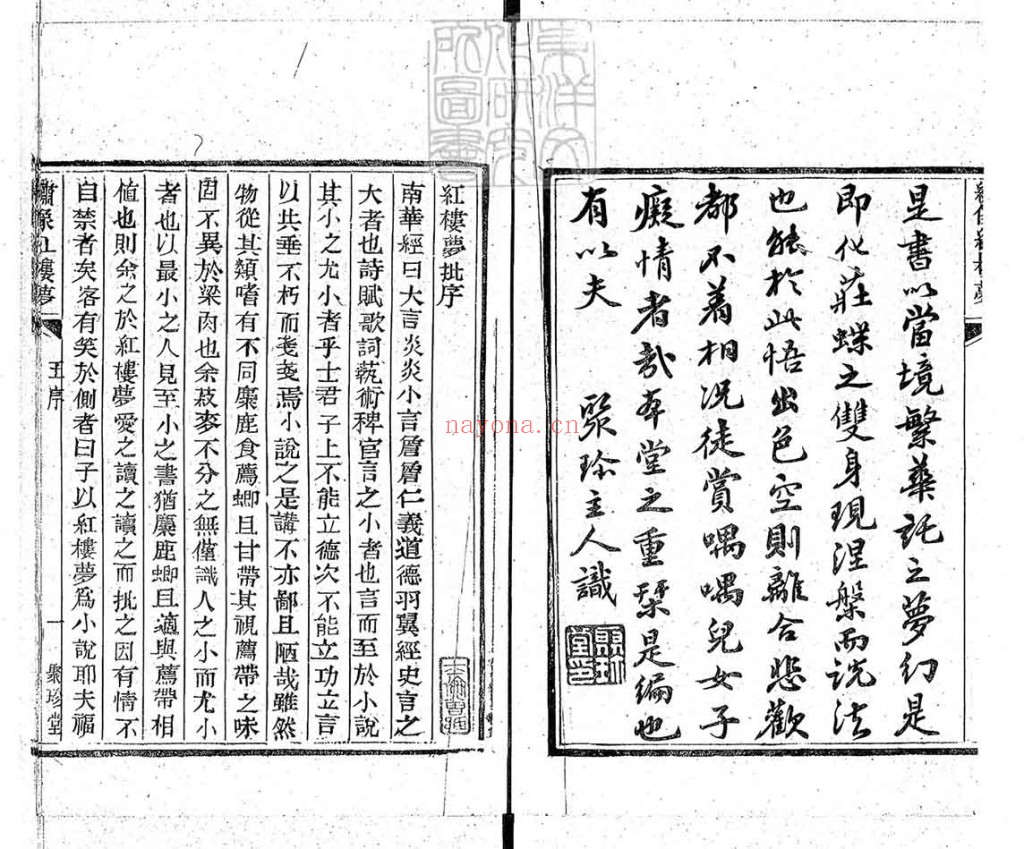 是書以當境繁華託之夢幻是
即化莊蝶之雙身現涅槃而說法
也能於此悟出色空則離合悲歡
都不着相况徒賞喁喁兒女子
癡情者哉本堂之重琹是編也
有以夫
聚珍主人識
紅樓夢批序
南華經曰大言炎炎小言詹詹仁義道德羽翼經史言之
大者也詩賦歌詞藝術稗官言之小者也言而至於小說
其小之尤小者乎士君子上不能立德次不能立功立言
以共垂不朽而戔戔焉小說之是講不亦鄙且陋哉雖然
物從其類嗜有不同麋鹿食薦蝍且甘帶其視薦帶之味
固不異於粱肉也余菽麥不分之無僅識人之小而尤小
者也以最小之人見至小之書猶麋鹿蝍且適與薦帶相
值也則余之於紅樓夢愛之讀之讀之而批之固有情不
自禁者矣客有笑於側者曰子以紅樓夢爲小說耶夫福
繡像紅樓夢
王序
一
聚珍堂
東洋文化研究所圖書
nayona.cn